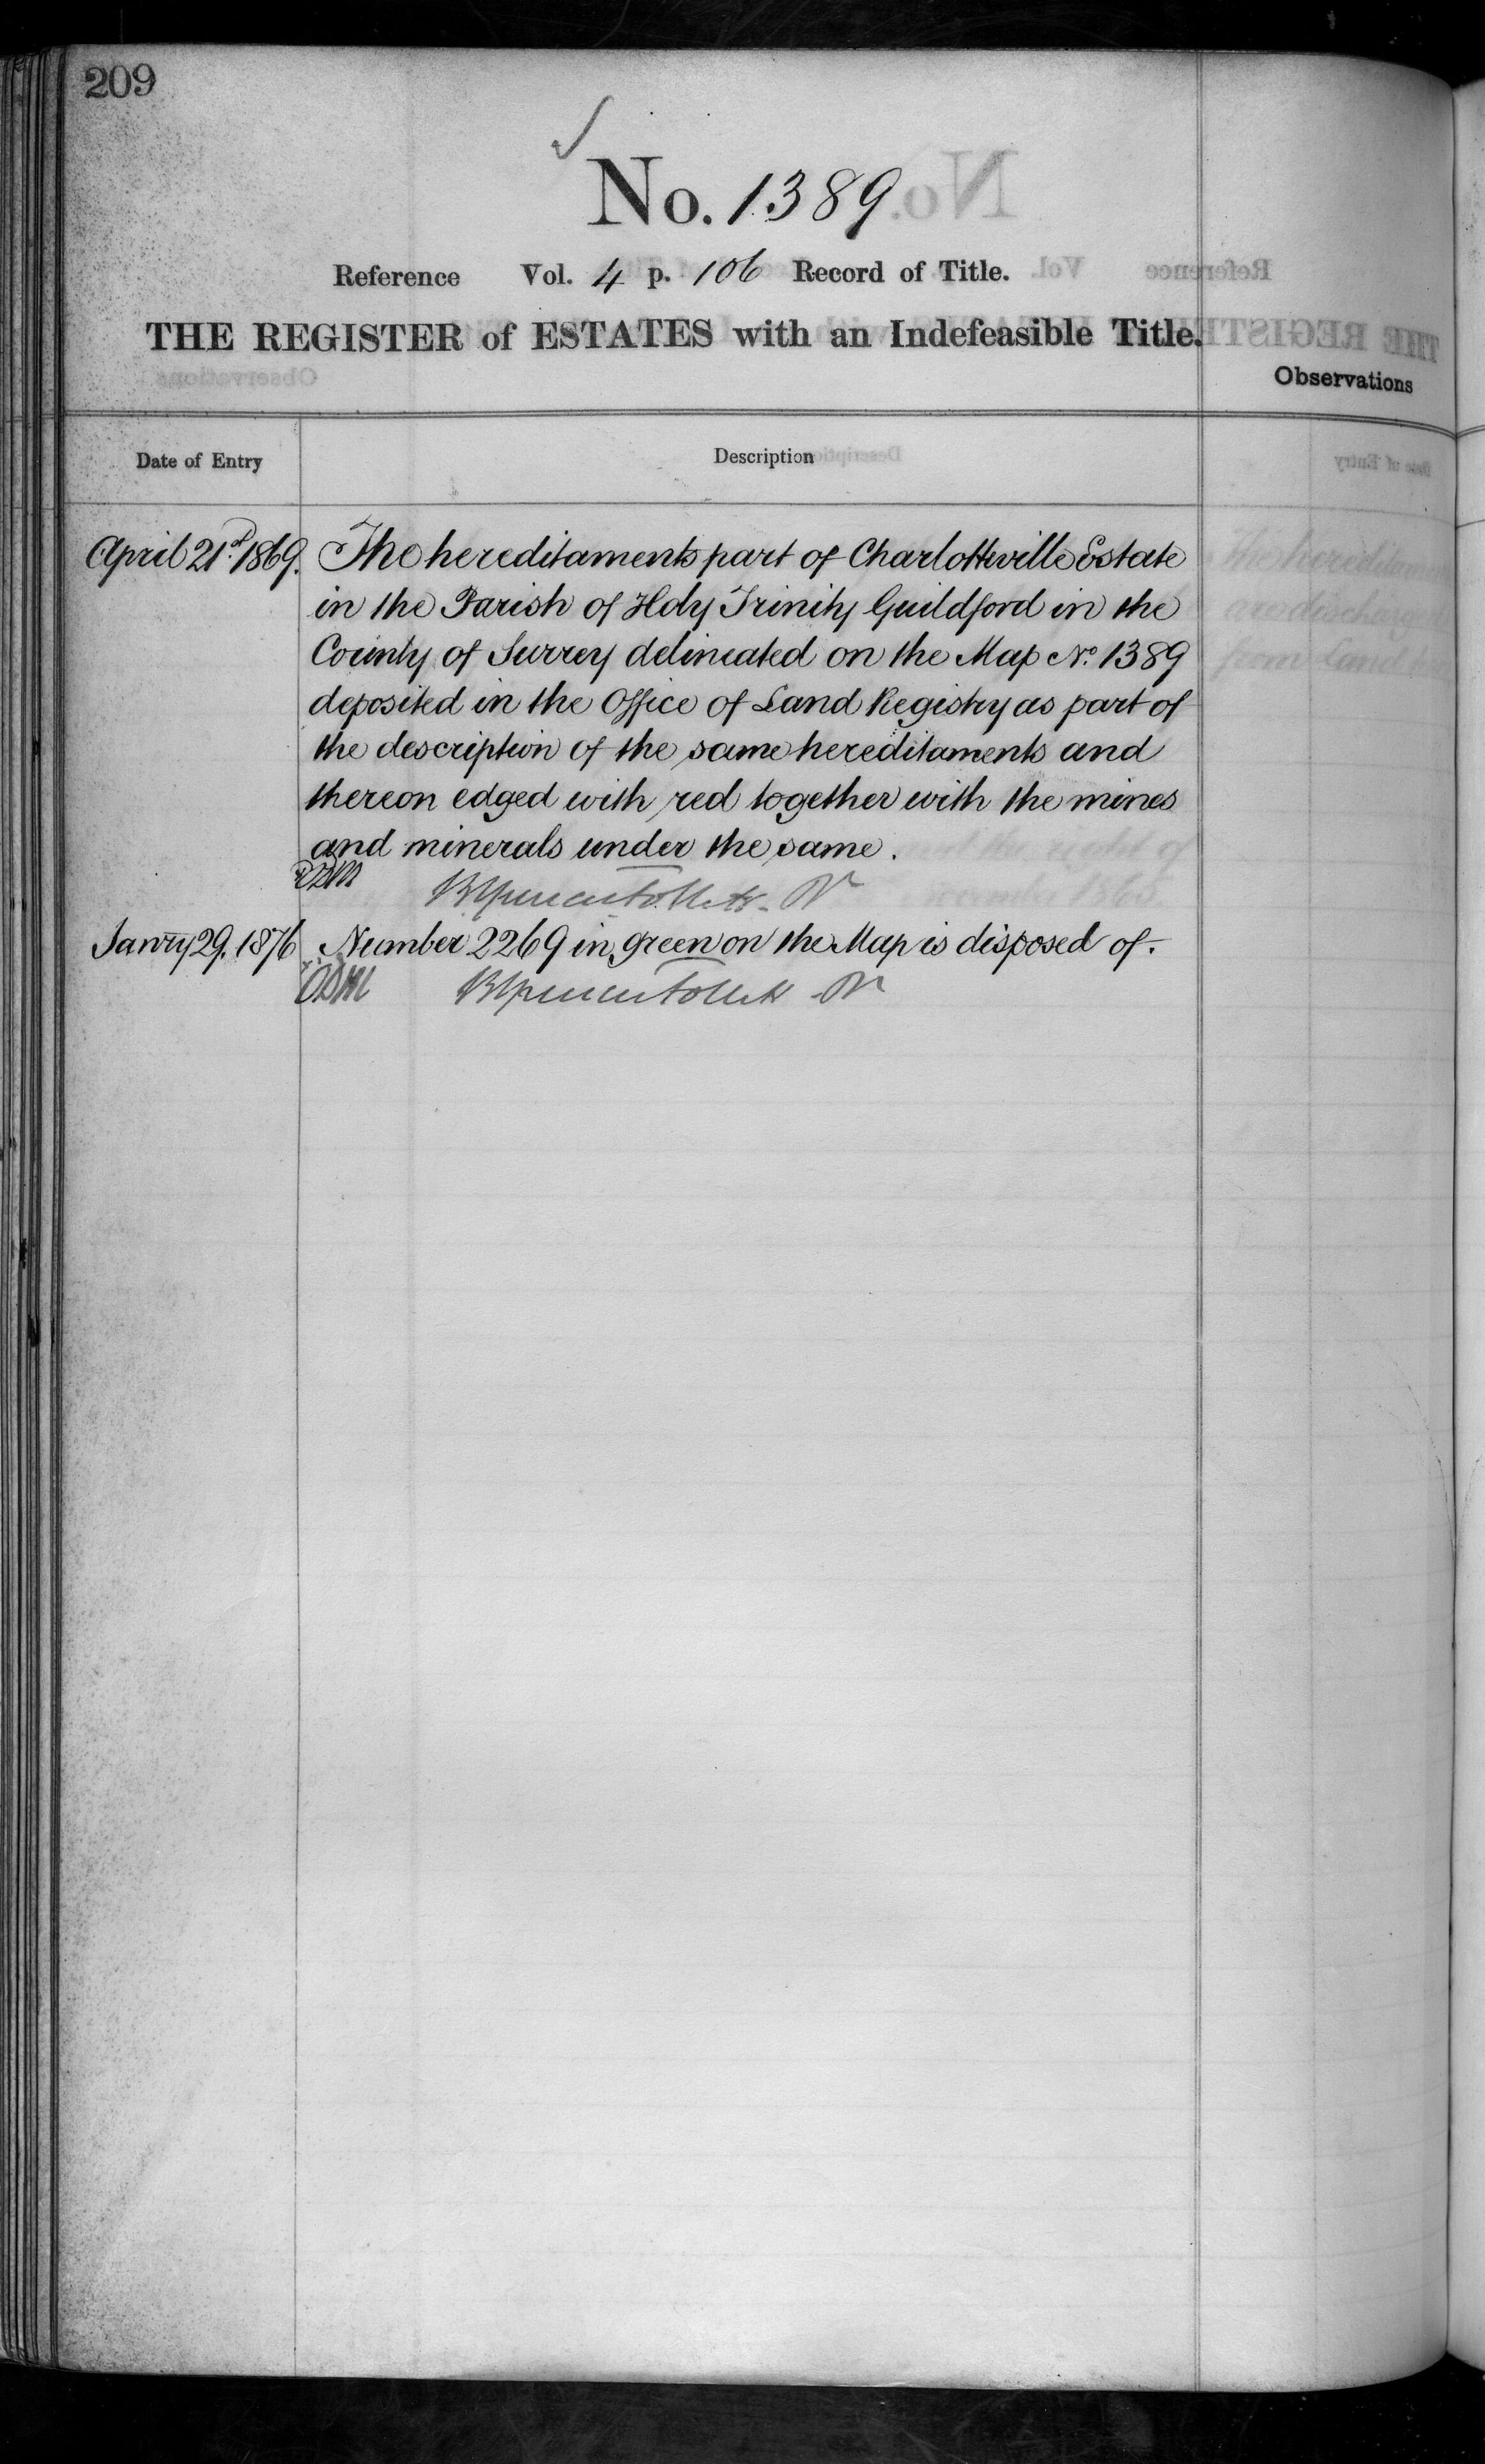 209
No. 1389
Reference Vol. 4 p. 106 Record of Title.
THE REGISTER of ESTATES with an Indefeasible Title.
Observations
Date of Entry Description
April 21st 1869. The hereditaments part of Charlotteville Estate
in the Parish of Holy Trinity Guildford in the
County of Surrey delineated on the Map No. 1389
deposited in the Office of Land Registry as part of
the description of the same hereditaments and
thereon edged with red together with the mines
and minerals under the same.
Janry 29. 1876 Number 2269 in green on the Map is disposed of.